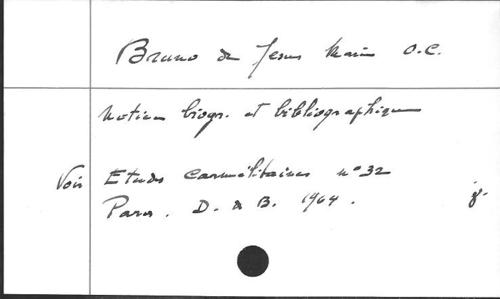 Bruno de Jesus Marie O.C.
Notices biogr. et bibliographiques
Voir Etudes Carmélitaines n° 32
Paris. D. d B. 1964.